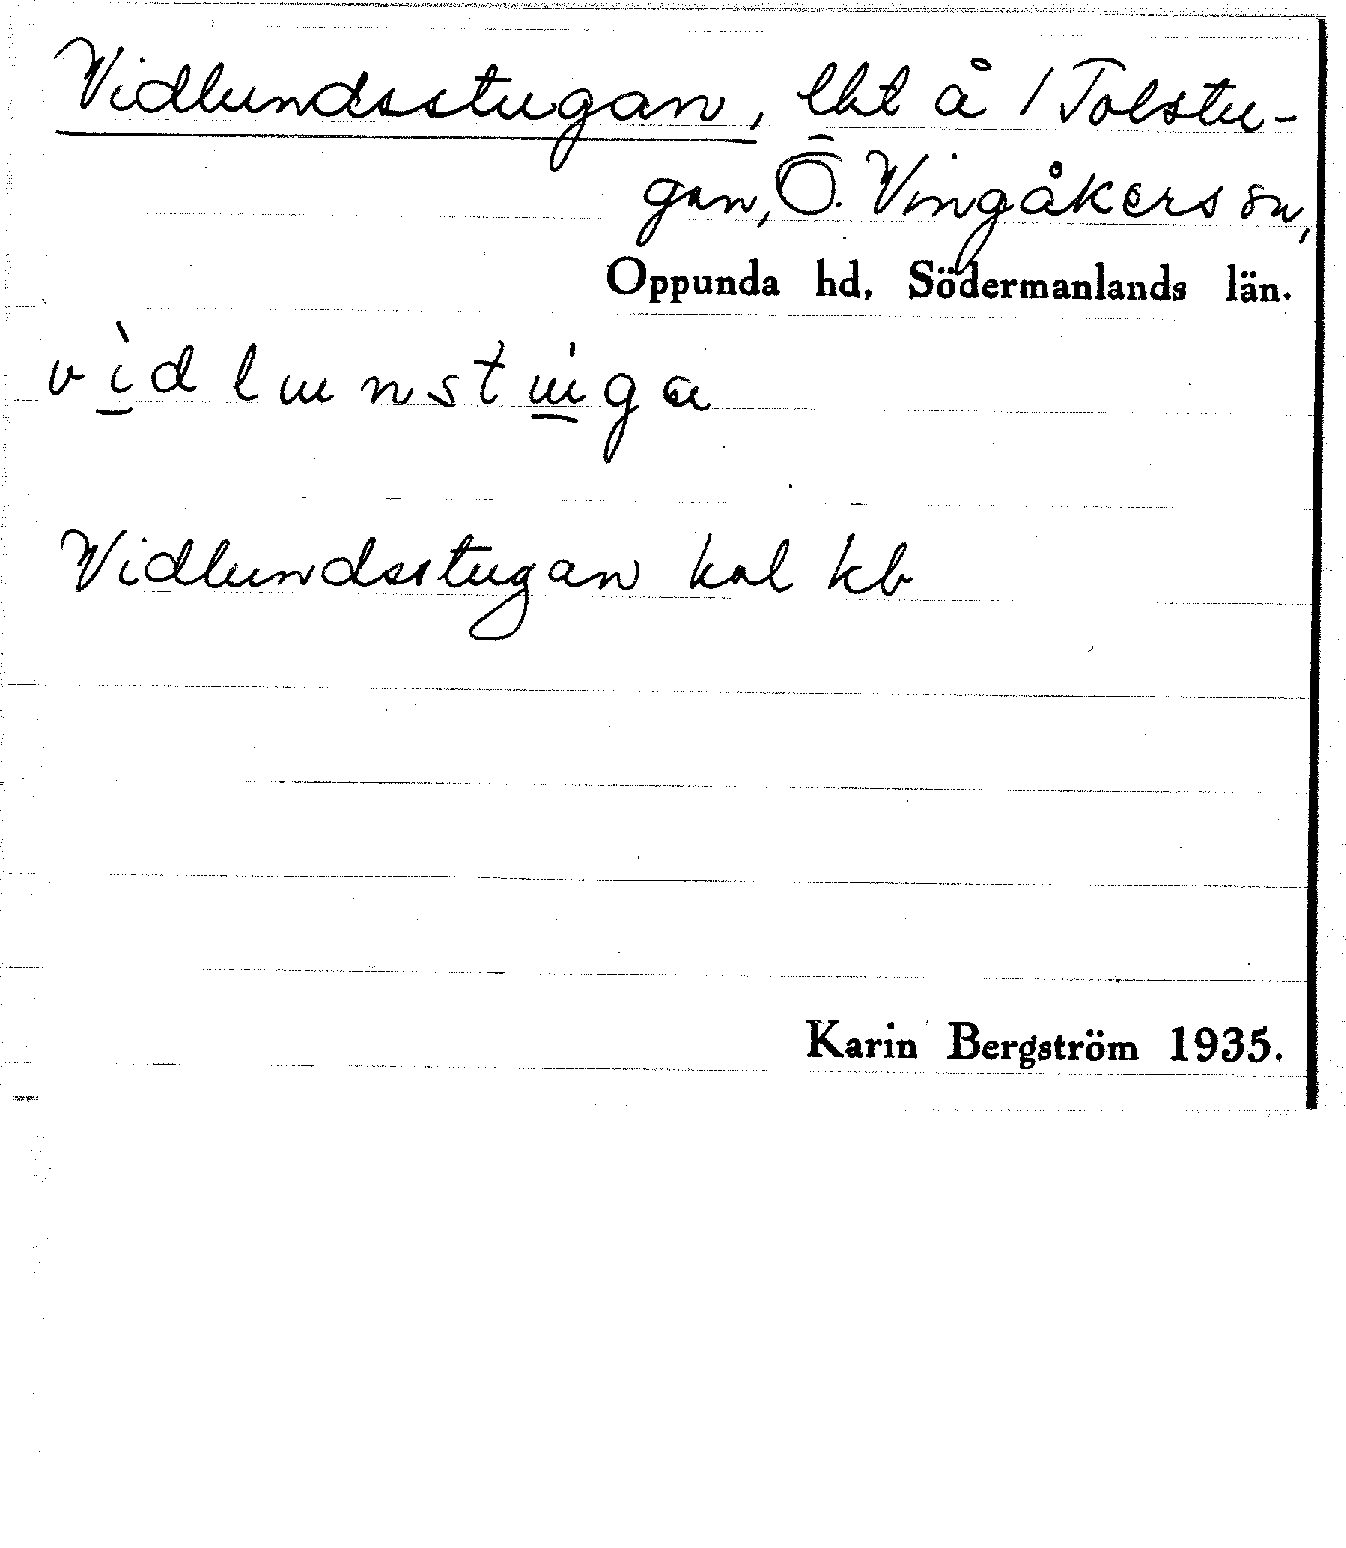 Vidlundsstugan, lht å 1 Tolstu-
gan, Ö. Vingåkers sn,
Oppunda hd, Södermanlands län.
vìdlunstúga
Vidlundsstugan kal kb
Karin Bergström 1935.